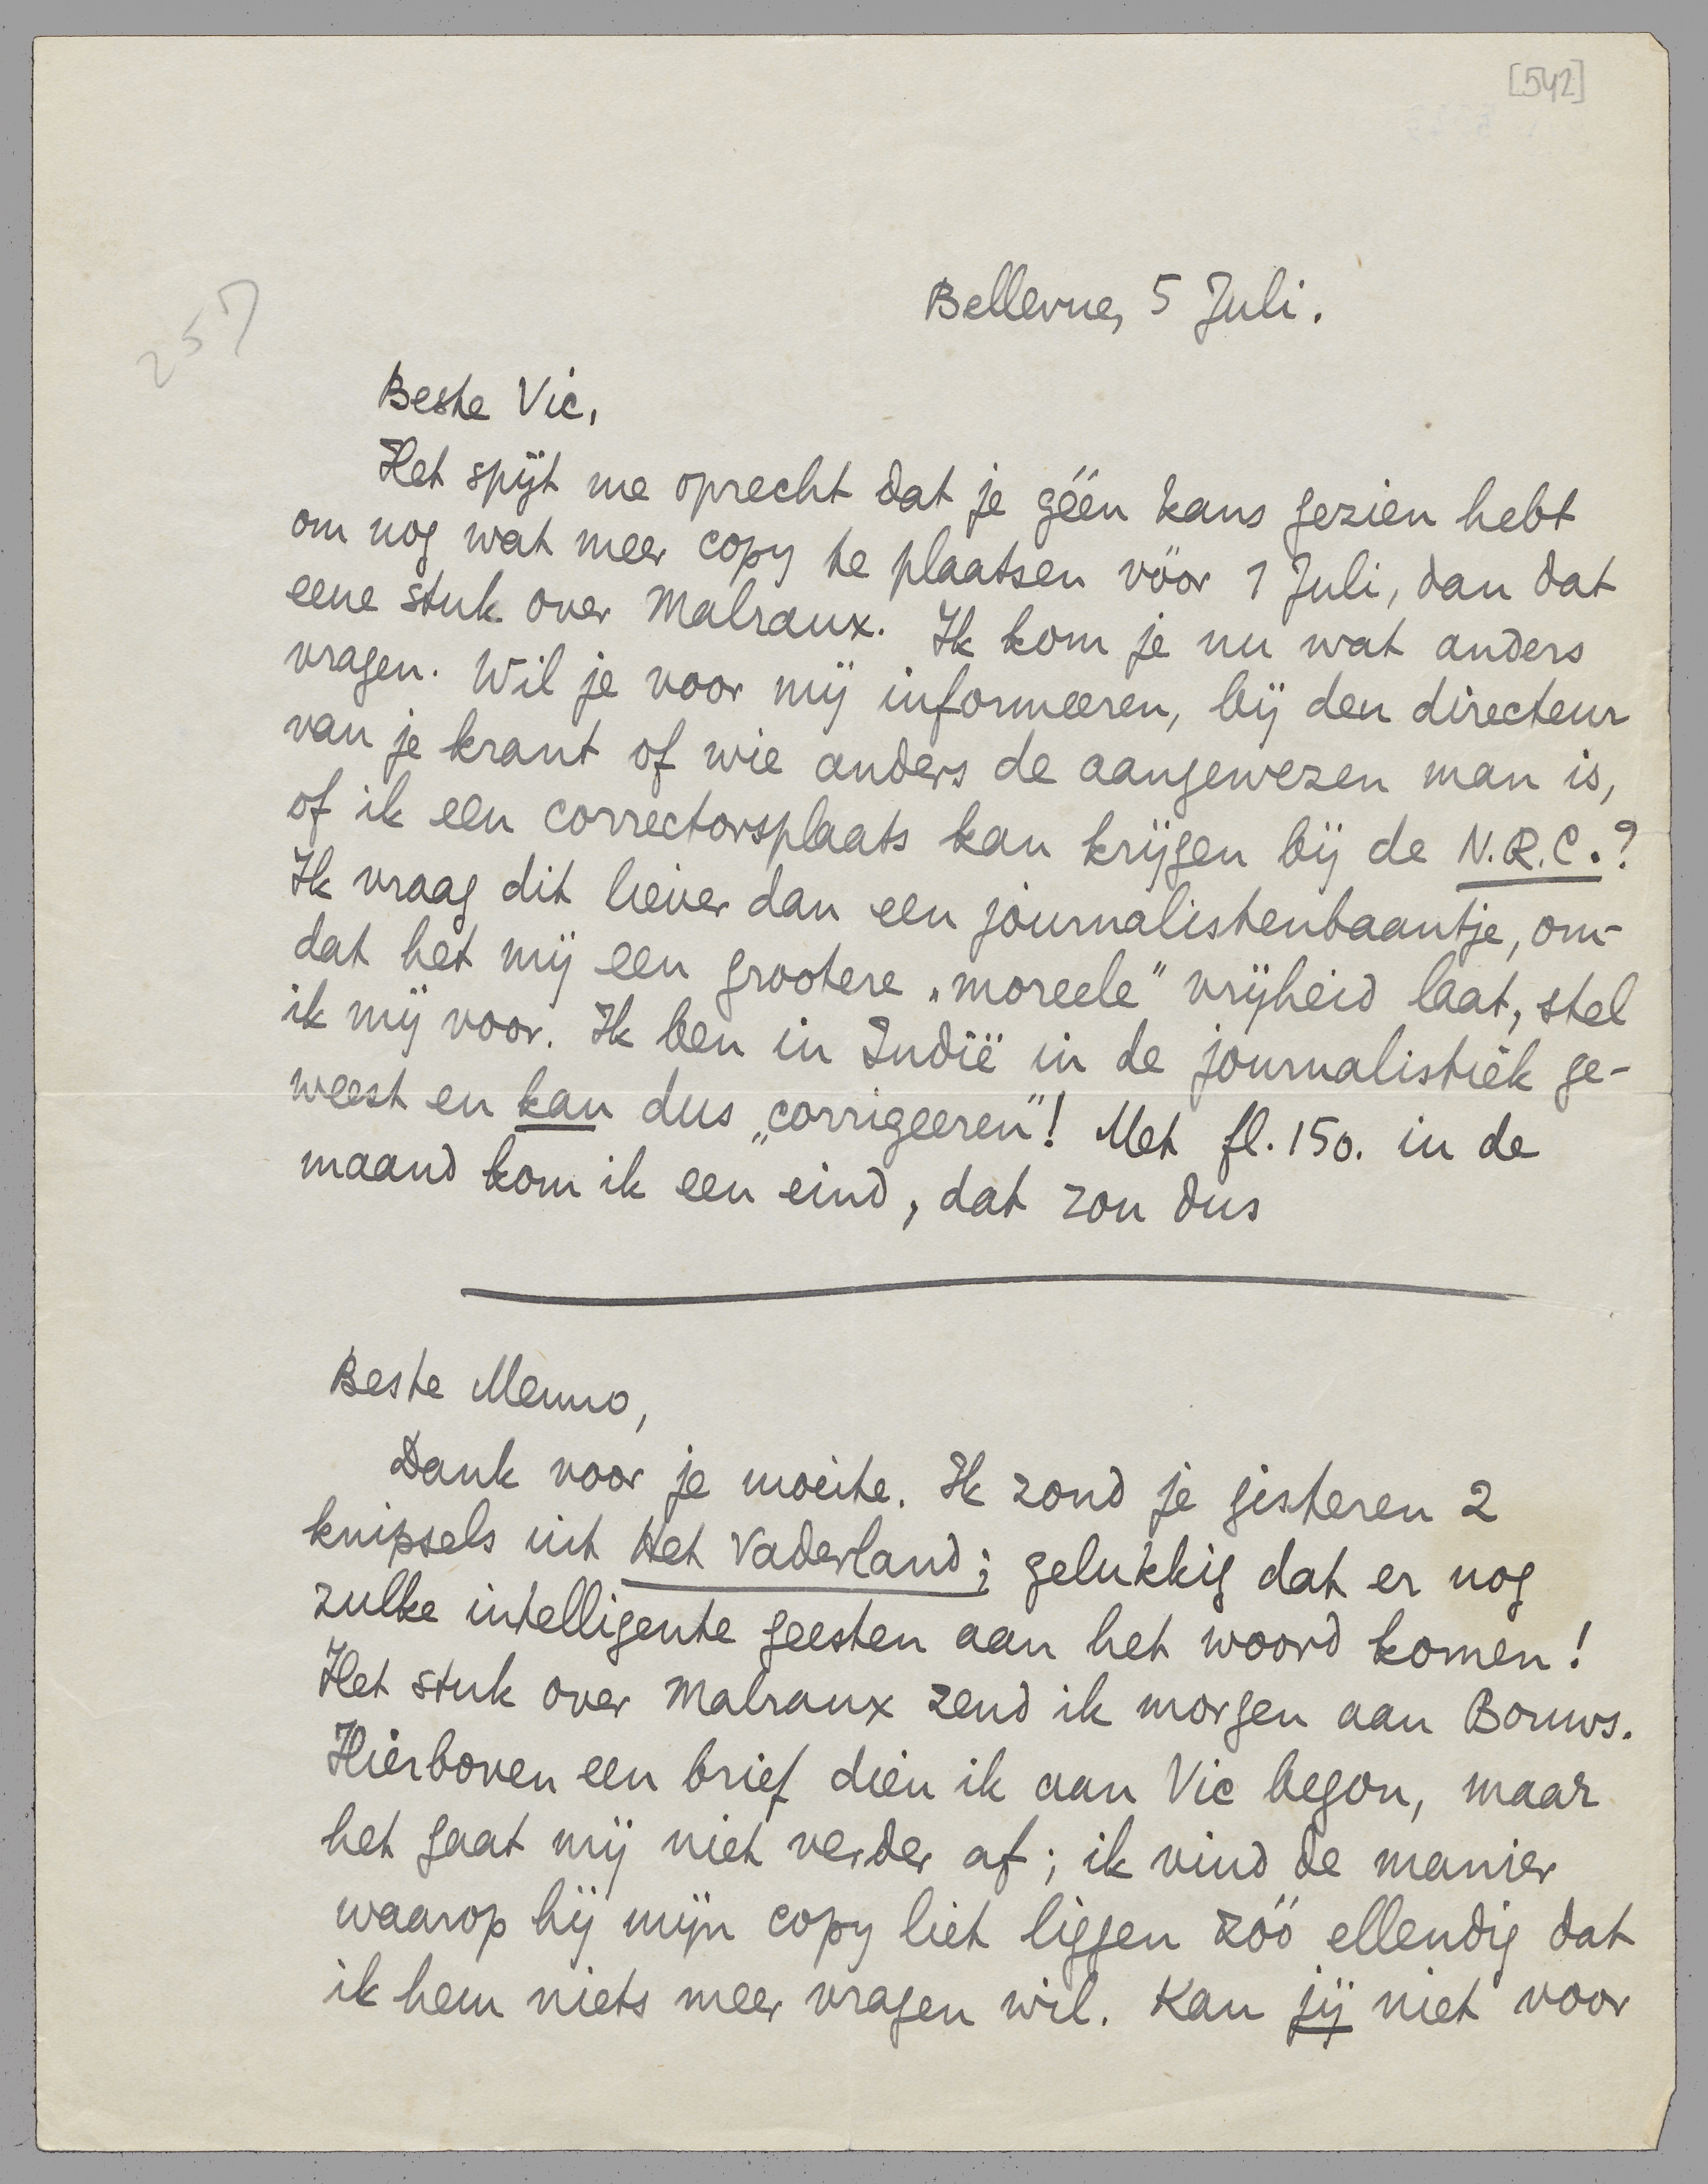 [542]
257
Bellevue, 5 Juli.
Beste Vic,
Het spijt me oprecht dat je géén kans gezien hebt
om nog wat meer copy te plaatsen vóór 1 Juli, dan dat
eene stuk over Malraux. Ik kom je nu wat anders
vragen. Wil je voor mij informeeren, bij den directeur
van je krant of wie anders de aangewezen man is,
of ik een correctorsplaats kan krijgen bij de N.R.C.?
Ik vraag dit liever dan een journalistenbaantje, om-
dat het mij een grootere „moreele" vrijheid laat, stel
ik mij voor. Ik ben in Indië in de journalistiek ge-
weest en kan dus „corrigeeren"! Met fl. 150. in de
maand kom ik een eind, dat zou dus
Beste Menno,
Dank voor je moeite. Ik zond je gisteren 2
knipsels uit Het Vaderland; gelukkig dat er nog
zulke intelligente geesten aan het woord komen!
Het stuk over Malraux zend ik morgen aan Bouws.
Hierboven een brief dien ik aan Vic begon, maar
het gaat mij niet verder af; ik vind de manier
waarop hij mijn copy liet liggen zóó ellendig dat
ik hem niets meer vragen wil. Kan jij niet voor